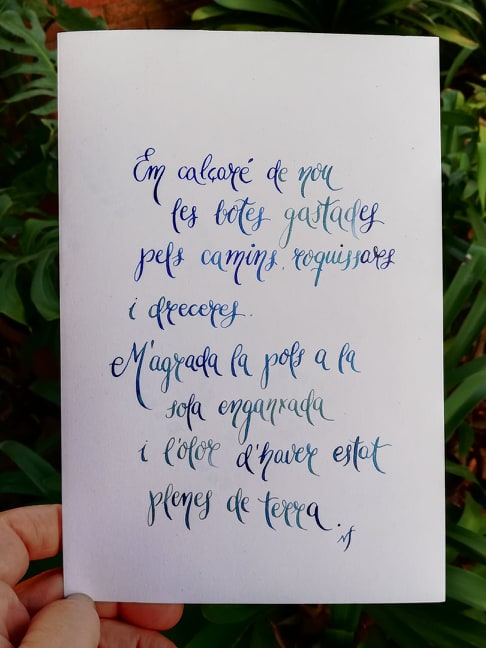 Em calçaré de nou
les botes gastades
pels camins, roquissars
i dreceres.
M'agrada la pols a la
sola enganxada
i l'olor d'haver estat
plenes de terra.